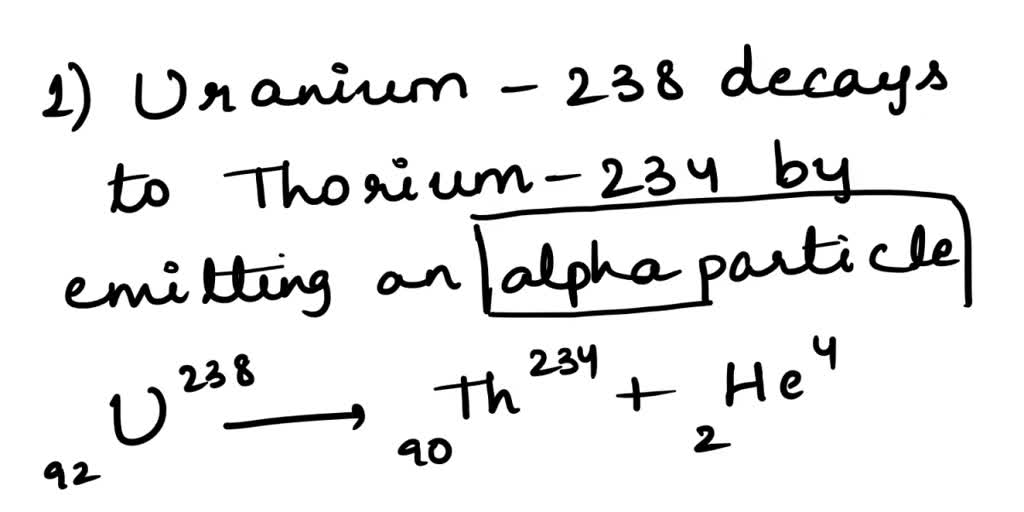 1) Uranium - 238 decays
to Thorium - 234 by
emitting an alpha particle
₉₂U²³⁸ → ₉₀Th²³⁴ + ₂He⁴